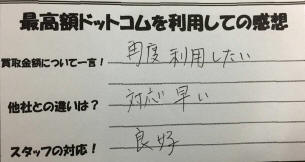 最高額ドットコムを利用しての感想
買取金額について一言！ 再度利用したい
他社との違いは？ 対応早い
スタッフの対応！ 良好